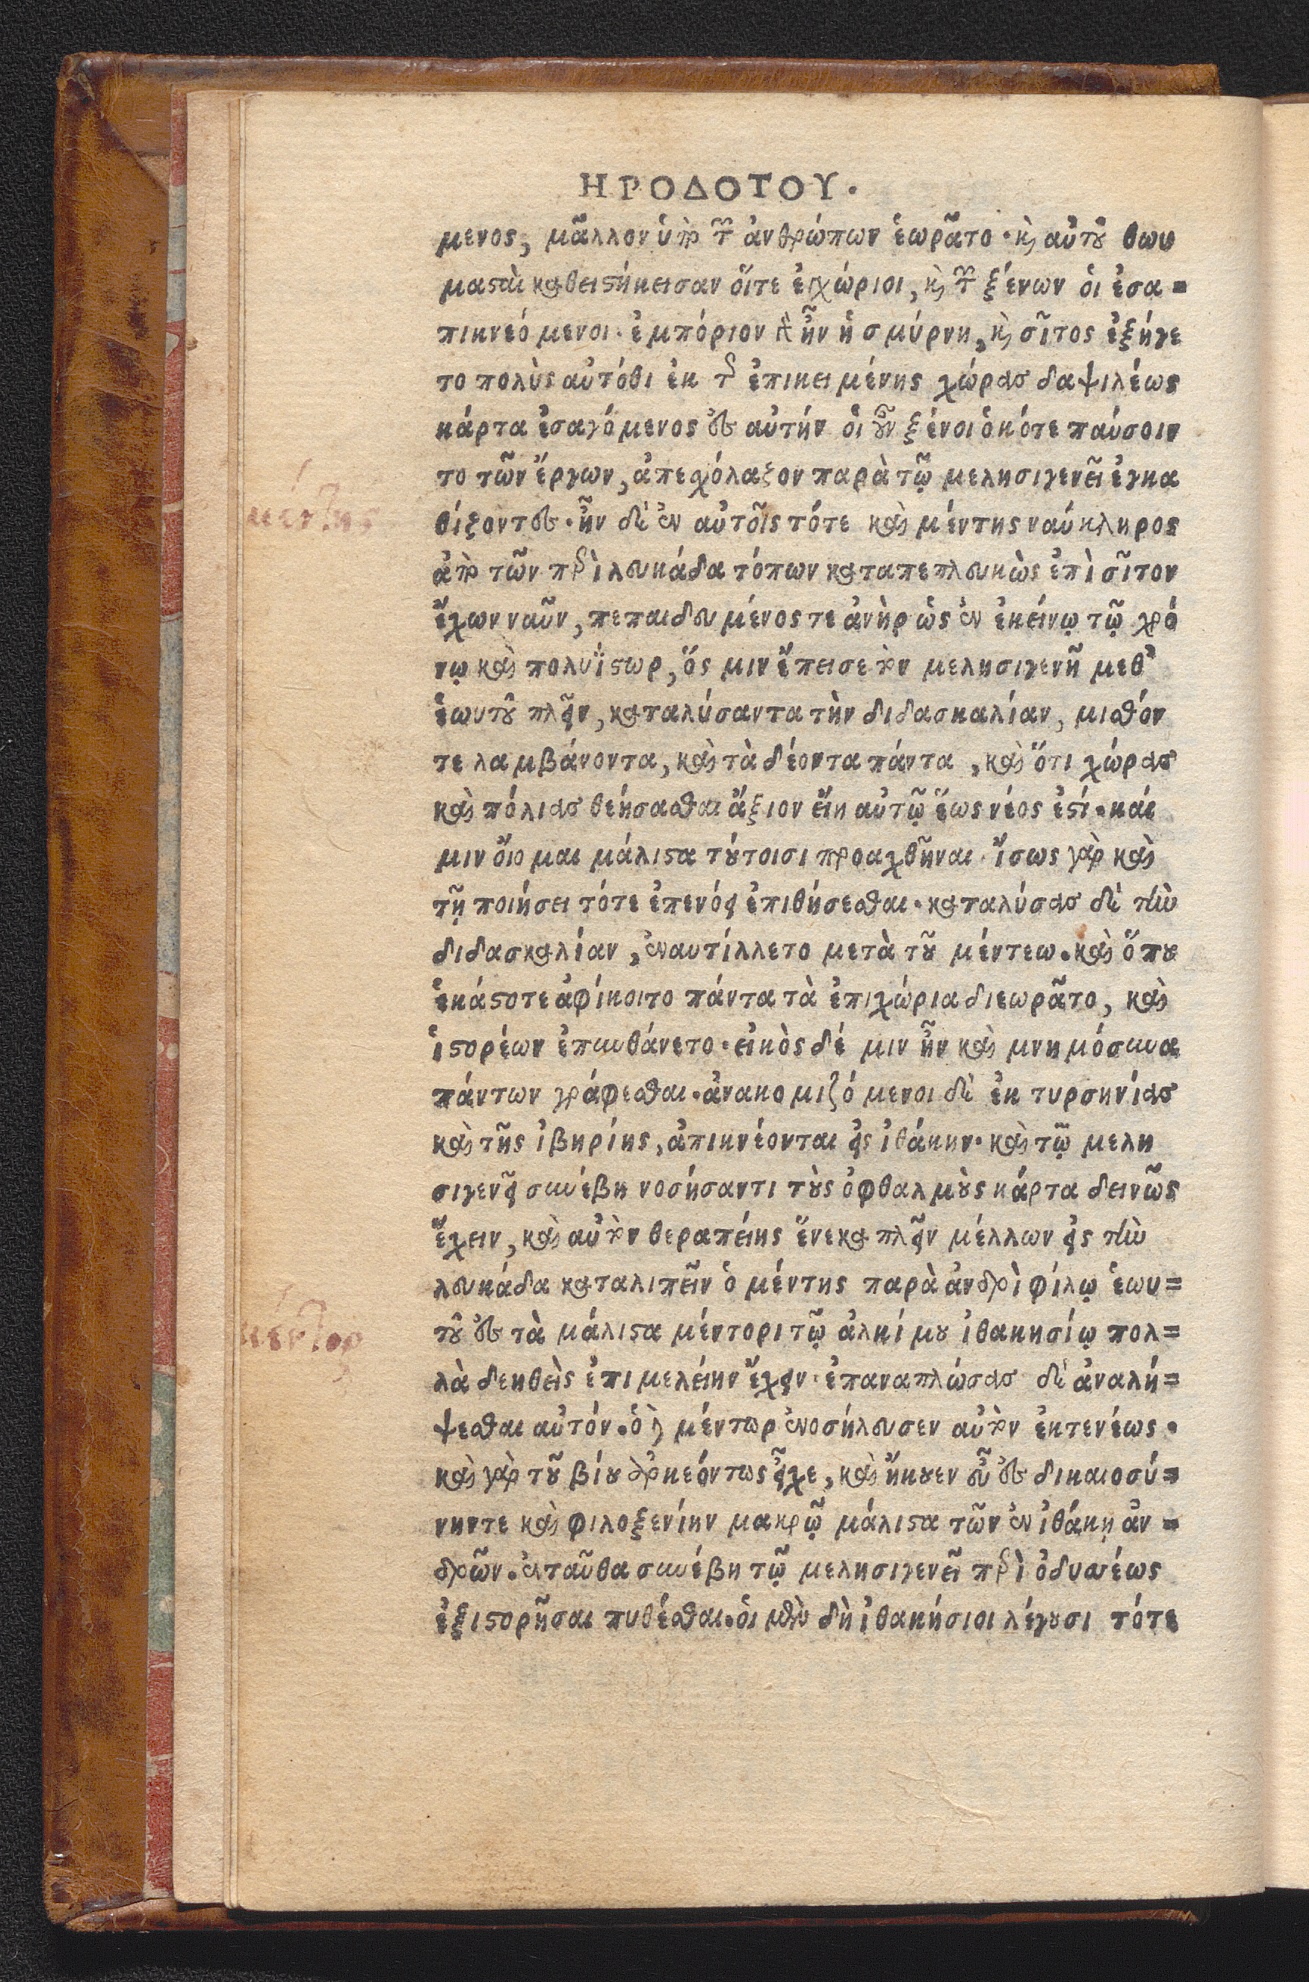 ΗΡΟΔΟΤΟΥ.
μενος, μᾶλλον ὑπὸ τῶν ἀνθρώπων ἑωρᾶτο. καὶ αὐτοῦ θωυ
μασταὶ καθειστήκεισαν οἵτε ἐγχώριοι, καὶ τῶν ξένων οἱ ἐσα=
πικνεόμενοι. ἐμπόριον γὰρ ἦν ἡ σμύρνη, καὶ σῖτος ἐξήγε
το πολὺς αὐτόθι ἐκ τῆς ἐπικειμένης χώρας δαψιλέως
κάρτα ἐσαγόμενος ἐς αὐτήν οἱ οὖν ξένοι ὁκότε παύσοιν
το τῶν ἔργων, ἀπεσχόλαζον παρὰ τῷ μελησιγενεῖ ἐγκα
θίζοντες. ἦν δὲ ἐν αὐτοῖς τότε καὶ μέντης ναύκληρος
ἀπὸ τῶν περὶ λευκάδα τόπων καταπεπλευκὼς ἐπὶ σῖτον
ἔχων ναῦν, πεπαιδευμένος τε ἀνὴρ ὡς ἐν ἐκείνῳ τῷ χρό
νῳ καὶ πολυΐστωρ, ὅς μιν ἔπεισε τὸν μελησιγενῆ μεθ'
ἑωυτοῦ πλεῖν, καταλύσαντα τὴν διδασκαλίαν, μισθόν
τε λαμβάνοντα, καὶ τὰ δέοντα πάντα, καὶ ὅτι χώρας
καὶ πόλιας θεήσασθαι ἄξιον εἴη αὐτῷ ἕως νέος ἐστί. καί
μιν οἴομαι μάλιστα τούτοισι προαχθῆναι. ἴσως γὰρ καὶ
τῇ ποιήσει τότε ἐπενόει ἐπιθήσεσθαι. καταλύσας δὲ τὴν
διδασκαλίαν, ἐναυτίλλετο μετὰ τοῦ μέντεω. καὶ ὅπου
ἑκάστοτε ἀφίκοιτο πάντα τὰ ἐπιχώρια διεωρᾶτο, καὶ
ἱστορέων ἐπυνθάνετο. εἰκὸς δέ μιν ἦν καὶ μνημόσυνα
πάντων γράφεσθαι. ἀνακομιζόμενοι δὲ ἐκ τυρσηνίας
καὶ τῆς ἰβηρίης, ἀπικνέονται εἰς ἰθάκην. καὶ τῷ μελη
σιγενεῖ συνέβη νοσήσαντι τοὺς ὀφθαλμοὺς κάρτα δεινῶς
ἔχειν, καὶ αὐτὸν θεραπείης ἕνεκα πλεῖν μέλλων εἰς τὴν
λευκάδα καταλιπεῖν ὁ μέντης παρὰ ἀνδρὶ φίλῳ ἑωυ=
τοῦ ἐς τὰ μάλιστα μέντορι τῷ ἀλκίμου ἰθακησίῳ πολ=
λὰ δεηθεὶς ἐπιμελείην ἔχειν. ἐπαναπλώσας δὲ ἀναλή=
ψεσθαι αὐτόν. ὁ δὲ μέντωρ ἐνοσήλευσεν αὐτὸν ἐκτενέως.
καὶ γὰρ τοῦ βίου ἀρκεόντως εἶχε, καὶ ἤκουεν εὖ ἐς δικαιοσύ=
νηντε καὶ φιλοξενίην μακρῷ μάλιστα τῶν ἐν ἰθάκῃ ἀν=
δρῶν. ἐνταῦθα συνέβη τῷ μελησιγενεῖ περὶ ὀδυσσέως
ἐξιστορῆσαι πυθέσθαι. οἱ μὲν δὴ ἰθακήσιοι λέγουσι τότε
μέντης
μέντορ